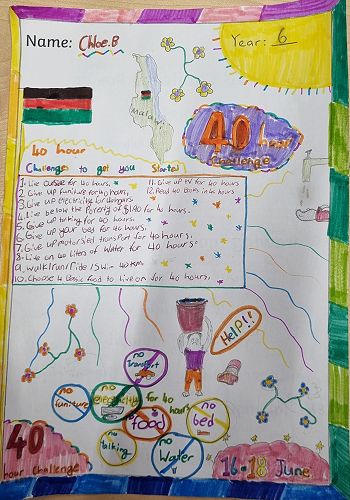 Name: Chloe.B
Year: 6
Malawi
40 hour
challenge
40 hour
Challenges to get you Started
1. Live outside for 40 hours.
2. Give up furniture for 40 hours.
3. Give up electricity for 40 hours.
4. Live below the Poverty of $1.90 for 40 hours.
5. Give up talking for 40 hours.
6. Give up your bed for 40 hours.
7. Give up motorised transport for 40 hours.
8. Live on 40 liters of Water for 40 hours.
9. walk/run/ride/Swim 40 km.
10. Choose 4 basic food to live on for 40 hours.
11. Give up TV for 40 hours
12. Read 40 books in 40 hours
Help!!
no
Transport
no
furniture
no
electricity
for 40
hours
no
food
no
bed
no
talking
no
Water
40
hour challenge
16-18 June